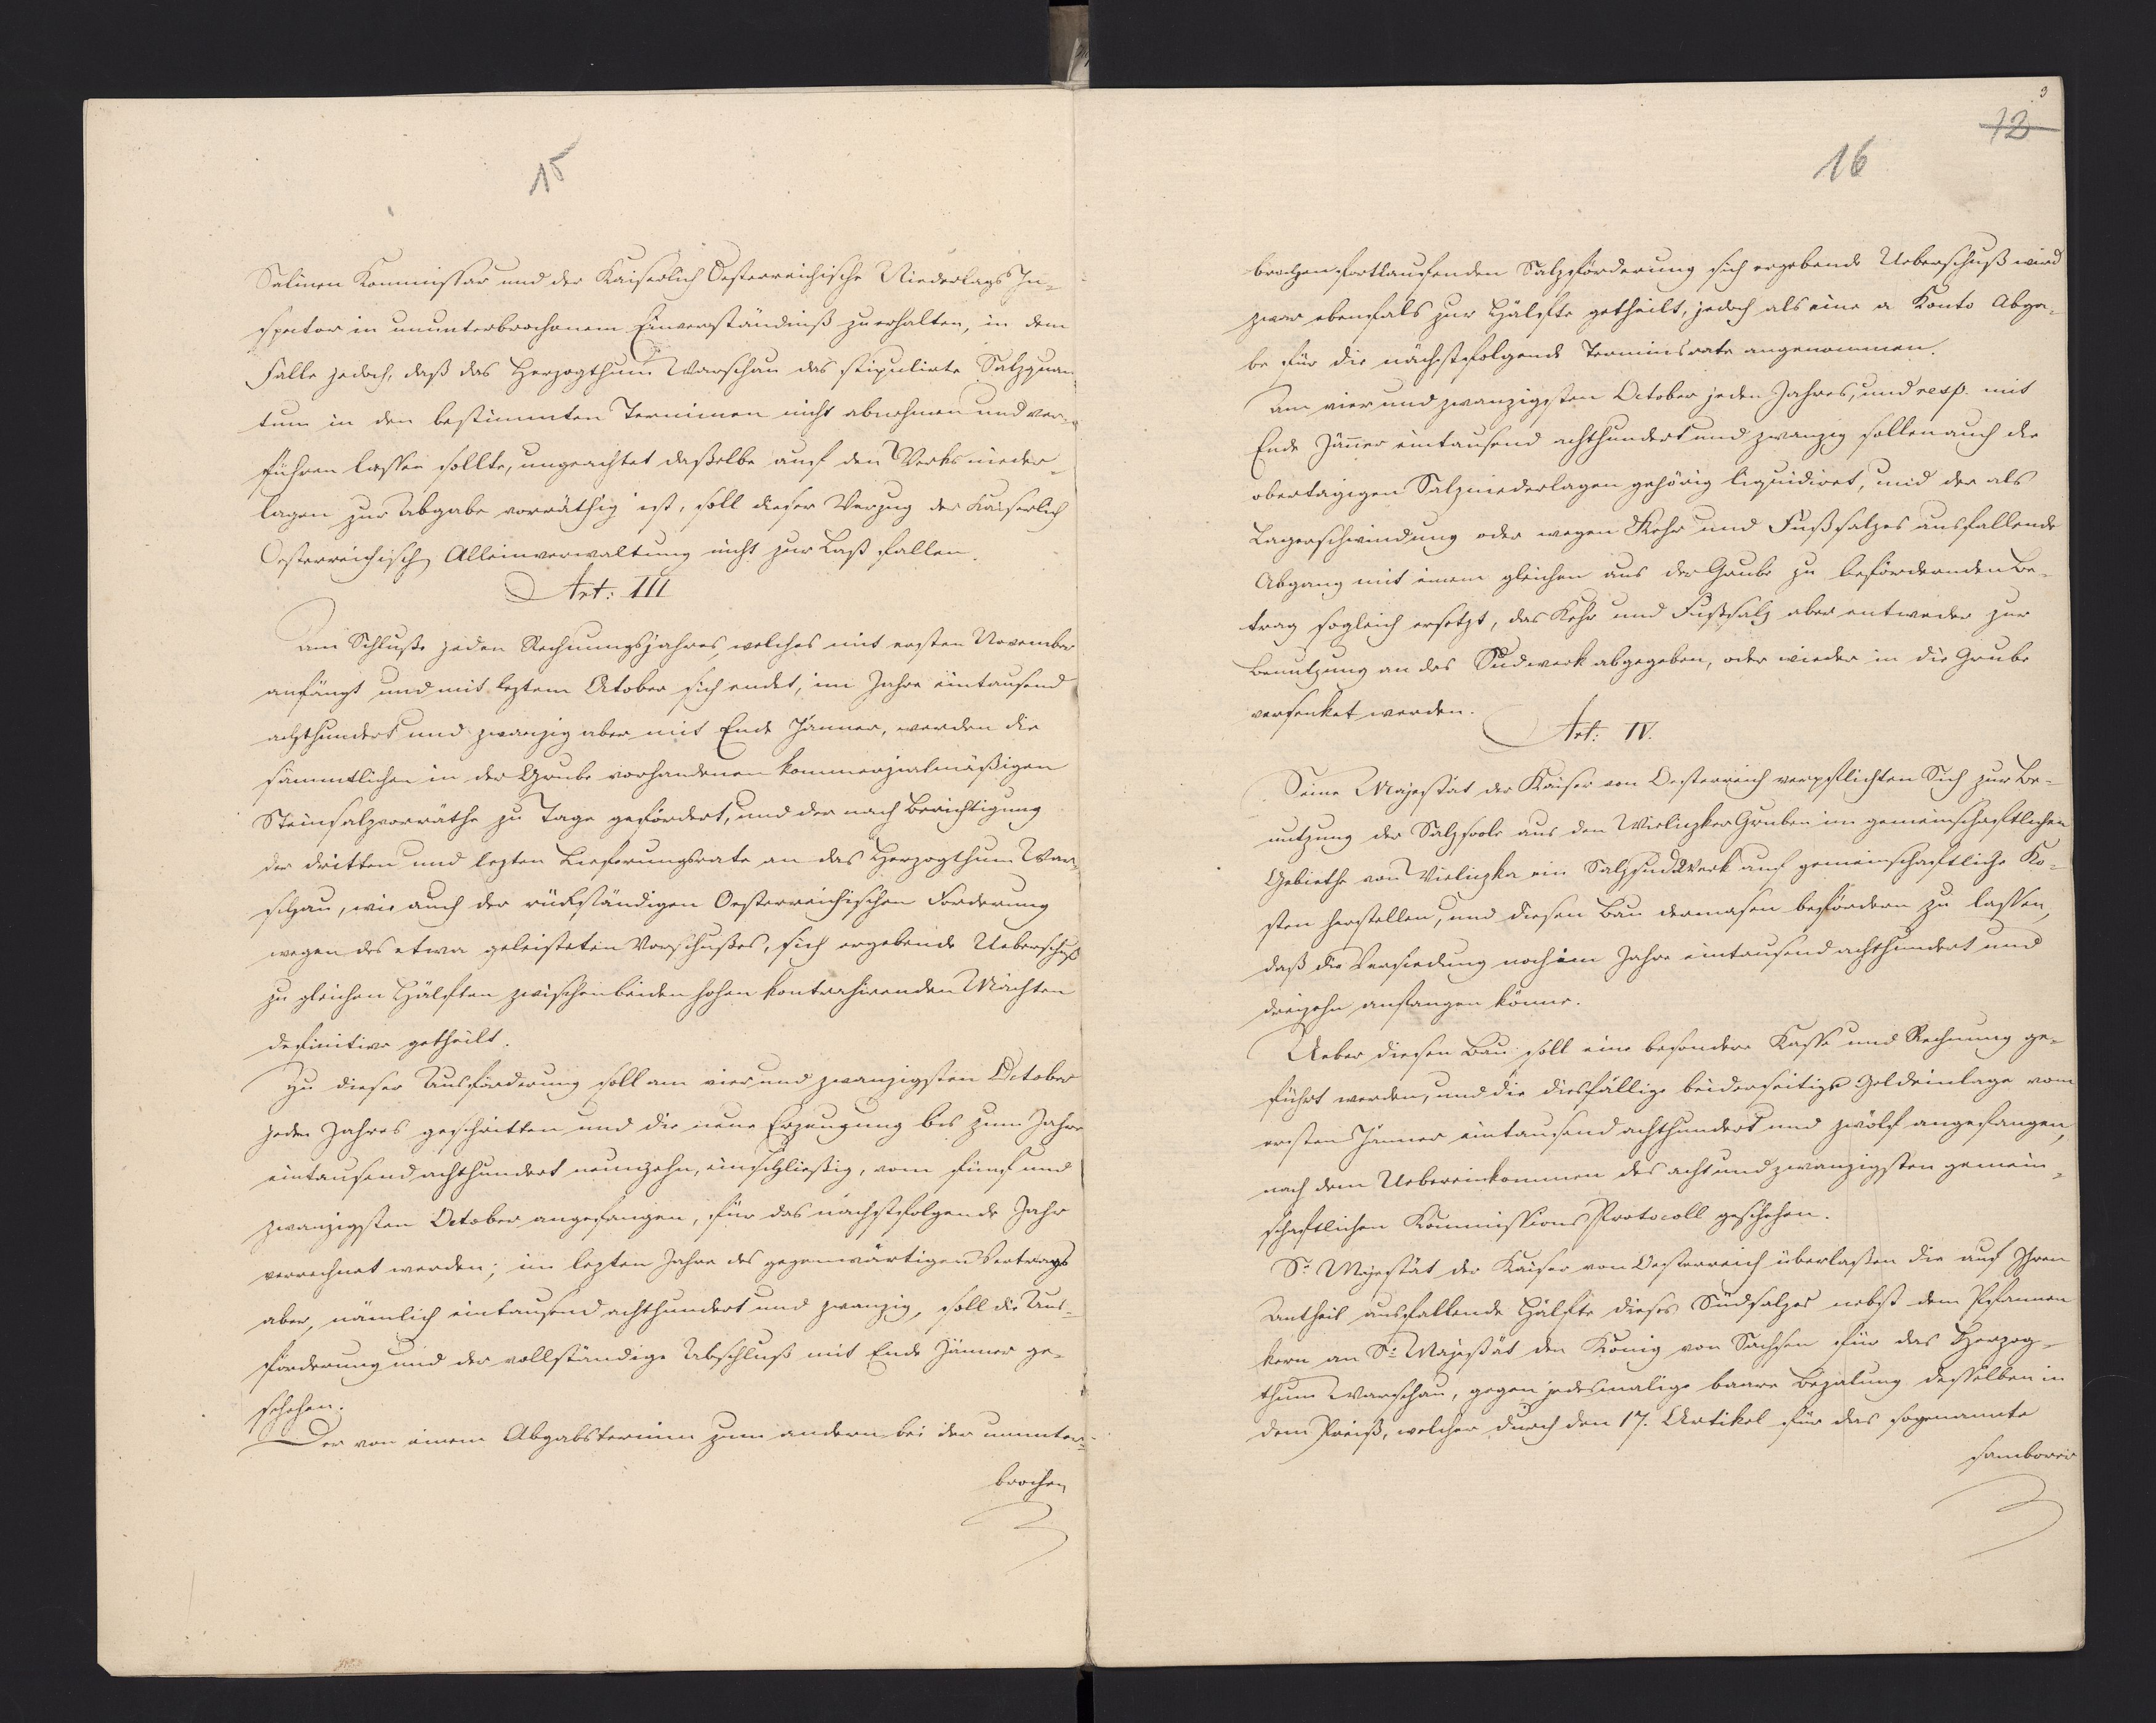 15
Salinen Kommissar und der Kaiserlich Oesterreichische Niederlags In-
spector in ununterbrochenem Einverständniß zu erhalten, in dem
Falle jedoch, daß das Herzogthum Warschau das stipulirte Salzquan-
tum in den bestimmten Terminen nicht abnehmen und ver-
führen lassen sollte, ungeachtet daßelbe auf den Werksnieder-
lagen zur Abgabe vorräthig ist, soll dieser Verzug der Kaiserlich
Oesterreichisch Alleinverwaltung nicht zur Last fallen.
Art: III
Am Schluße jeden Rechnungsjahres, welches mit ersten November
anfängt und mit leztem October sich endet, im Jahre eintausend
achthundert und zwanzig aber mit Ende Jänner, werden die
sämmtlichen in der Grube vorhandenen kommerzialmäßigen
Steinsalzvorräthe zu Tage gefördert, und der nach Berichtigung
der dritten und lezten Lieferungsrate an das Herzogthum War-
schau, wie auch der rükständigen Oesterreichischen Forderung
wegen des etwa geleisteten Vorschußes, sich ergebende Ueberschuß
zu gleichen Hälften zwischen beiden hohen kontrahirenden Mächten
definitive getheilt.
Zu dieser Ausförderung soll am vier und zwanzigsten October
jeden Jahres geschritten und die neue Erzeugung bis zum Jahre
eintausend achthundert neunzehn, einschließig, vom fünf und
zwanzigsten October angefangen, für das nächstfolgende Jahr
verrechnet werden; im lezten Jahre des gegenwärtigen Vertrags
aber, nämlich eintausend achthundert und zwanzig, soll die Aus-
förderung und der vollständige Abschluß mit Ende Jänner ge-
schehen.
Der von einem Abgabstermin zum andern bei der ununter-
brochen
3
12
16
brochen fortlaufenden Salzförderung sich ergebende Ueberschuß wird
zwar ebenfals zur Hälfte getheilt, jedoch als eine a Konto Abga-
be für die nächstfolgende Terminsrate angenommen.
Am vier und zwanzigsten October jeden Jahres, und resp. mit
Ende Jäner eintausend achthundert und zwanzig sollen auch die
obertagigen Salzniederlagen gehörig liquidiret, und der als
Lagerschwindung oder wegen Kehr und Fußsalzes ausfallende
Abgang mit einem gleichen aus der Grube zu befördernden Be-
trag sogleich ersetzt, das Kehr und Fußsalz aber entweder zur
Benutzung an das Sudwerk abgegeben, oder wieder in die Grube
versenket werden.
Art: IV.
Seine Majestät der Kaiser von Oesterreich verpflichten Sich zur Be-
nutzung der Salzsoole aus den Wieliczker Gruben im gemeinschaftlichen
Gebiethe von Wieliczka ein Salzsudwerk auf gemeinschaftliche Ko-
sten herstellen, und diesen Bau dermasen befördern zu lassen,
daß die Versiedung noch im Jahre eintausend achthundert und
dreizehn anfangen könne.
Ueber diesen Bau soll eine besondere Kasse und Rechnung ge-
führt werden, und die diesfällige beiderseitige Geldeinlage vom
ersten Jänner eintausend achthundert und zwölf angefangen,
nach dem Uebereinkommen des acht und zwanzigsten gemein-
schaftlichen Kommissions Protocoll geschehen.
Sr Majestät der Kaiser von Oesterreich überlaßen die auf Ihren
Antheil ausfallende Hälfte dieses Südsalzes nebst dem Pfannen
kern an Sr Majestät den König von Sachsen für das Herzog-
thum Warschau, gegen jedesmalige baare Bezalung desselben in
dem Preiß, welcher durch den 17. Artikel für das sogenannte
samborer